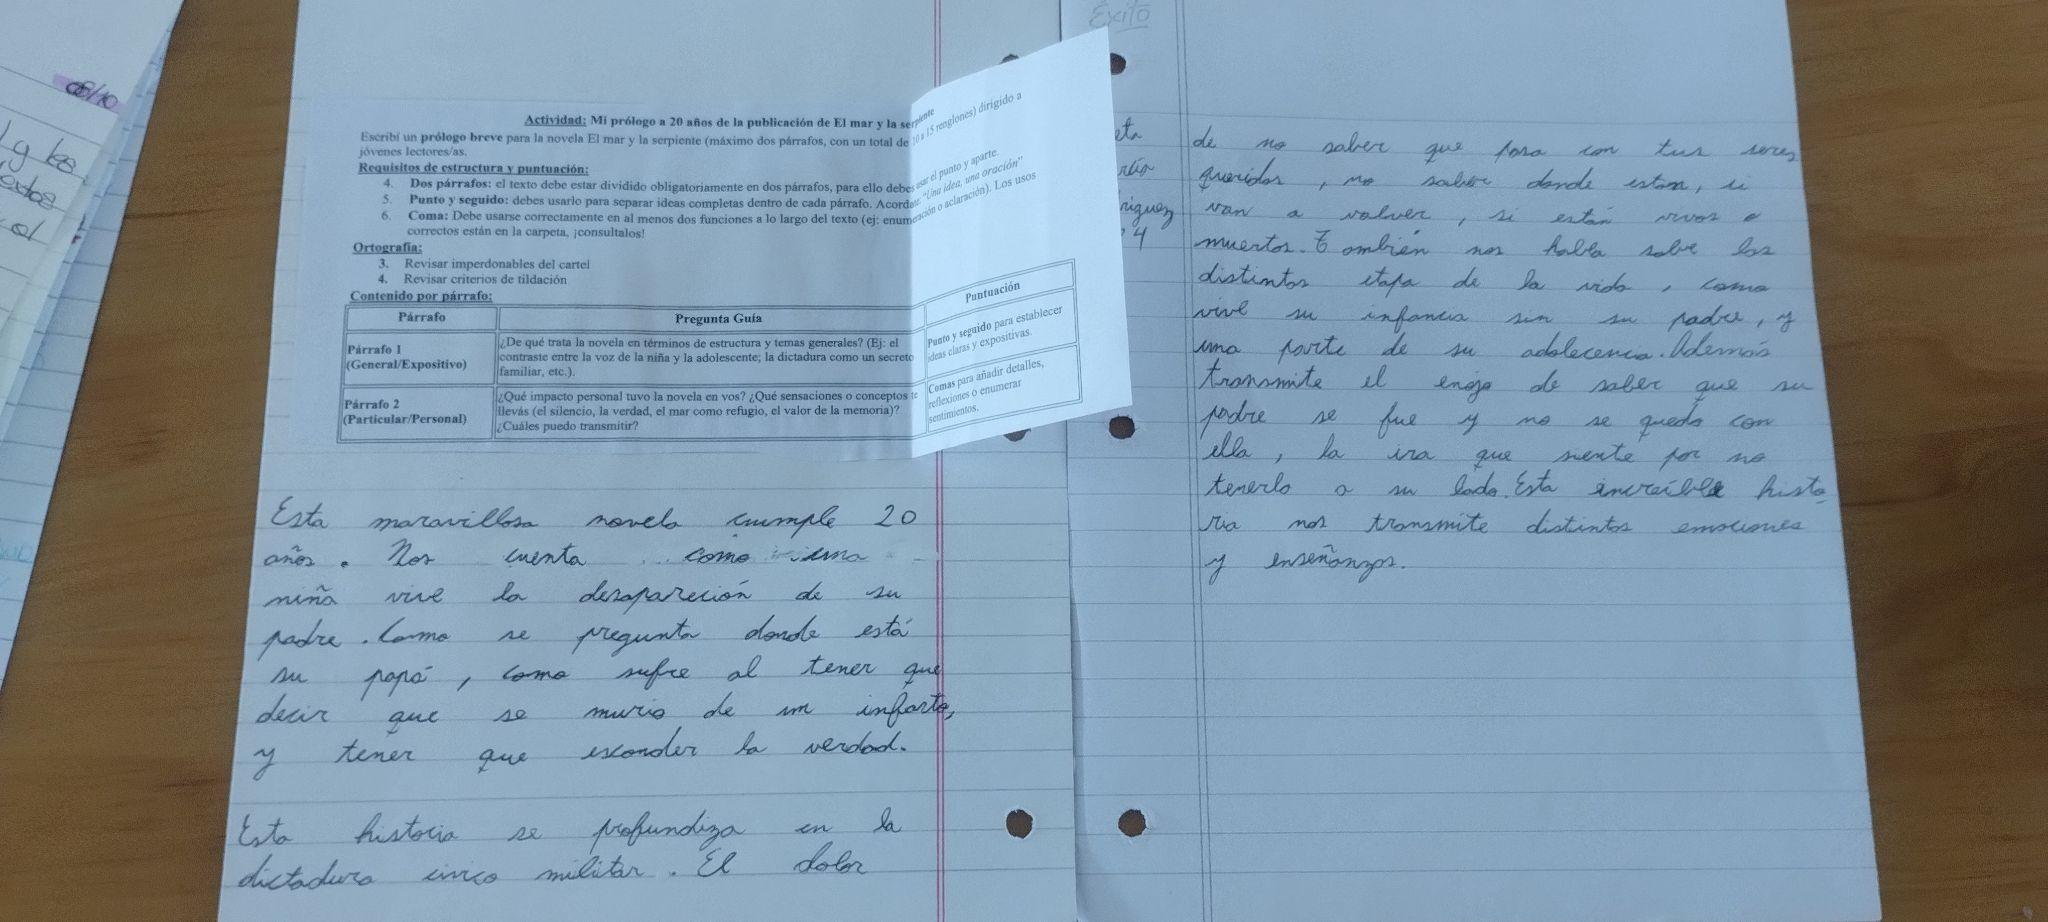 Éxito
08/10
y los
Actividad: Mi prólogo a 20 años de la publicación de El mar y la serpiente
Escribí un prólogo breve para la novela El mar y la serpiente (máximo dos párrafos, con un total de 10 a 15 renglones) dirigido a
jóvenes lectores/as.
Requisitos de estructura y puntuación:
4. Dos párrafos: el texto debe estar dividido obligatoriamente en dos párrafos, para ello debes usar el punto y aparte.
5. Punto y seguido: debes usarlo para separar ideas completas dentro de cada párrafo. Acordate: "Una idea, una oración"
6. Coma: Debe usarse correctamente en al menos dos funciones a lo largo del texto (ej: enumeración o aclaración). Los usos
correctos están en la carpeta, ¡consultalos!
Ortografía:
3. Revisar imperdonables del cartel
4. Revisar criterios de tildación
Contenido por párrafo:
Párrafo Pregunta Guía Puntuación
Párrafo 1
(General/Expositivo)
¿De qué trata la novela en términos de estructura y temas generales? (Ej: el
contraste entre la voz de la niña y la adolescente; la dictadura como un secreto
familiar, etc.).
Punto y seguido para establecer
ideas claras y expositivas.
Párrafo 2
(Particular/Personal)
¿Qué impacto personal tuvo la novela en vos? ¿Qué sensaciones o conceptos te
llevás (el silencio, la verdad, el mar como refugio, el valor de la memoria)?
¿Cuáles puedo transmitir?
Comas para añadir detalles,
reflexiones o enumerar
sentimientos.
Esta maravillosa novela cumple 20
años. Nos cuenta como una
niña vive la desaparición de su
padre. Como se pregunta donde está
su papá, como sufre al tener que
decir que se murio de un infarto,
y tener que esconder la verdad.
Esta historia se profundiza en la
dictadura civico militar. El dolor
de no saber que pasa con tus seres
queridos, no saber donde estan, si
van a volver, si están vivos o
muertos. También nos habla sobre las
distintas etapa de la vida, como
vive su infancia sin su padre, y
una parte de su adolecencia. Además
transmite el enojo de saber que su
padre se fue y no se quedo con
ella, la ira que siente por no
tenerlo a su lado. Esta increíble histo
ria nos transmite distintas emociones
y enseñanzas.